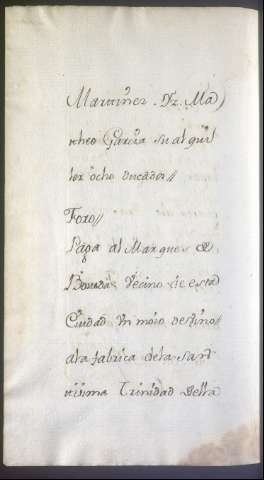 Martinez. Dz. Ma
theo Garcia su alquil
ler ocho ducados//
Foro//
Paga al Marques de
Bouzas Vecino de esta
Ciudad Un moio de vino
a la fabrica de la Sant
issima Trinidad Della